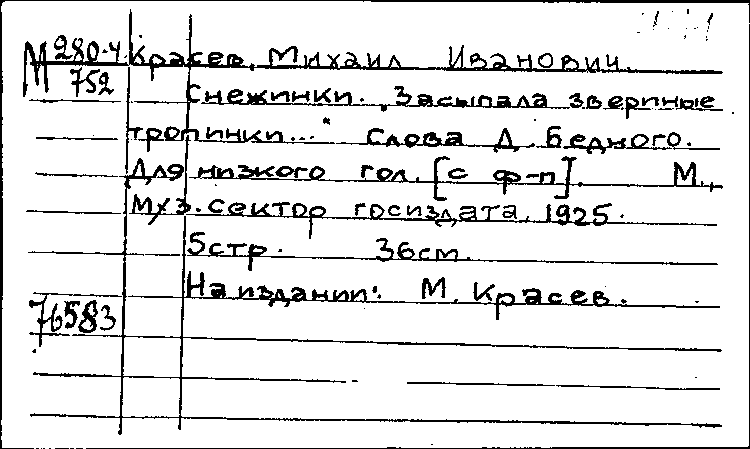 М 280-4 Красев, Михаил Иванович.
752 Снежинки. "Засыпала звериные
тропинки..." Слова Д. Бедного.
Для низкого гол. [с ф-п]. М.,
Муз. сектор госиздата, 1925.
5стр. 36см.
На издании: М. Красев.
76583